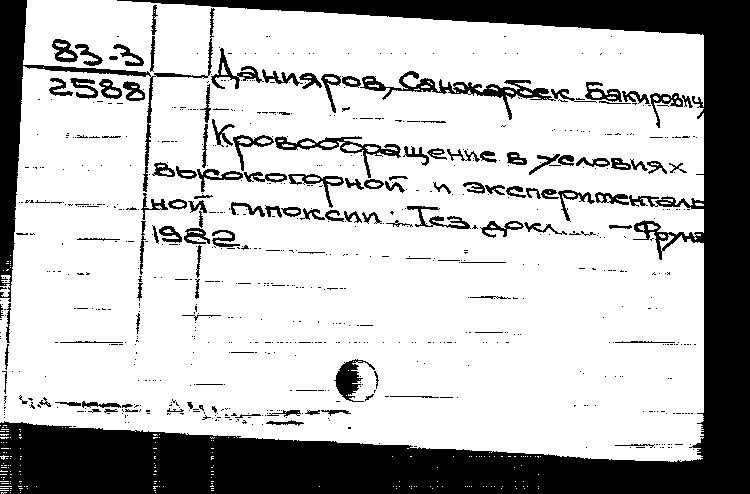 83-3
2588
Данияров, Санжарбек Бакирович,
Кровообращение в условиях
высокогорной и эксперименталь
ной гипоксии: Тез. докл.... – Фрунз
1982.